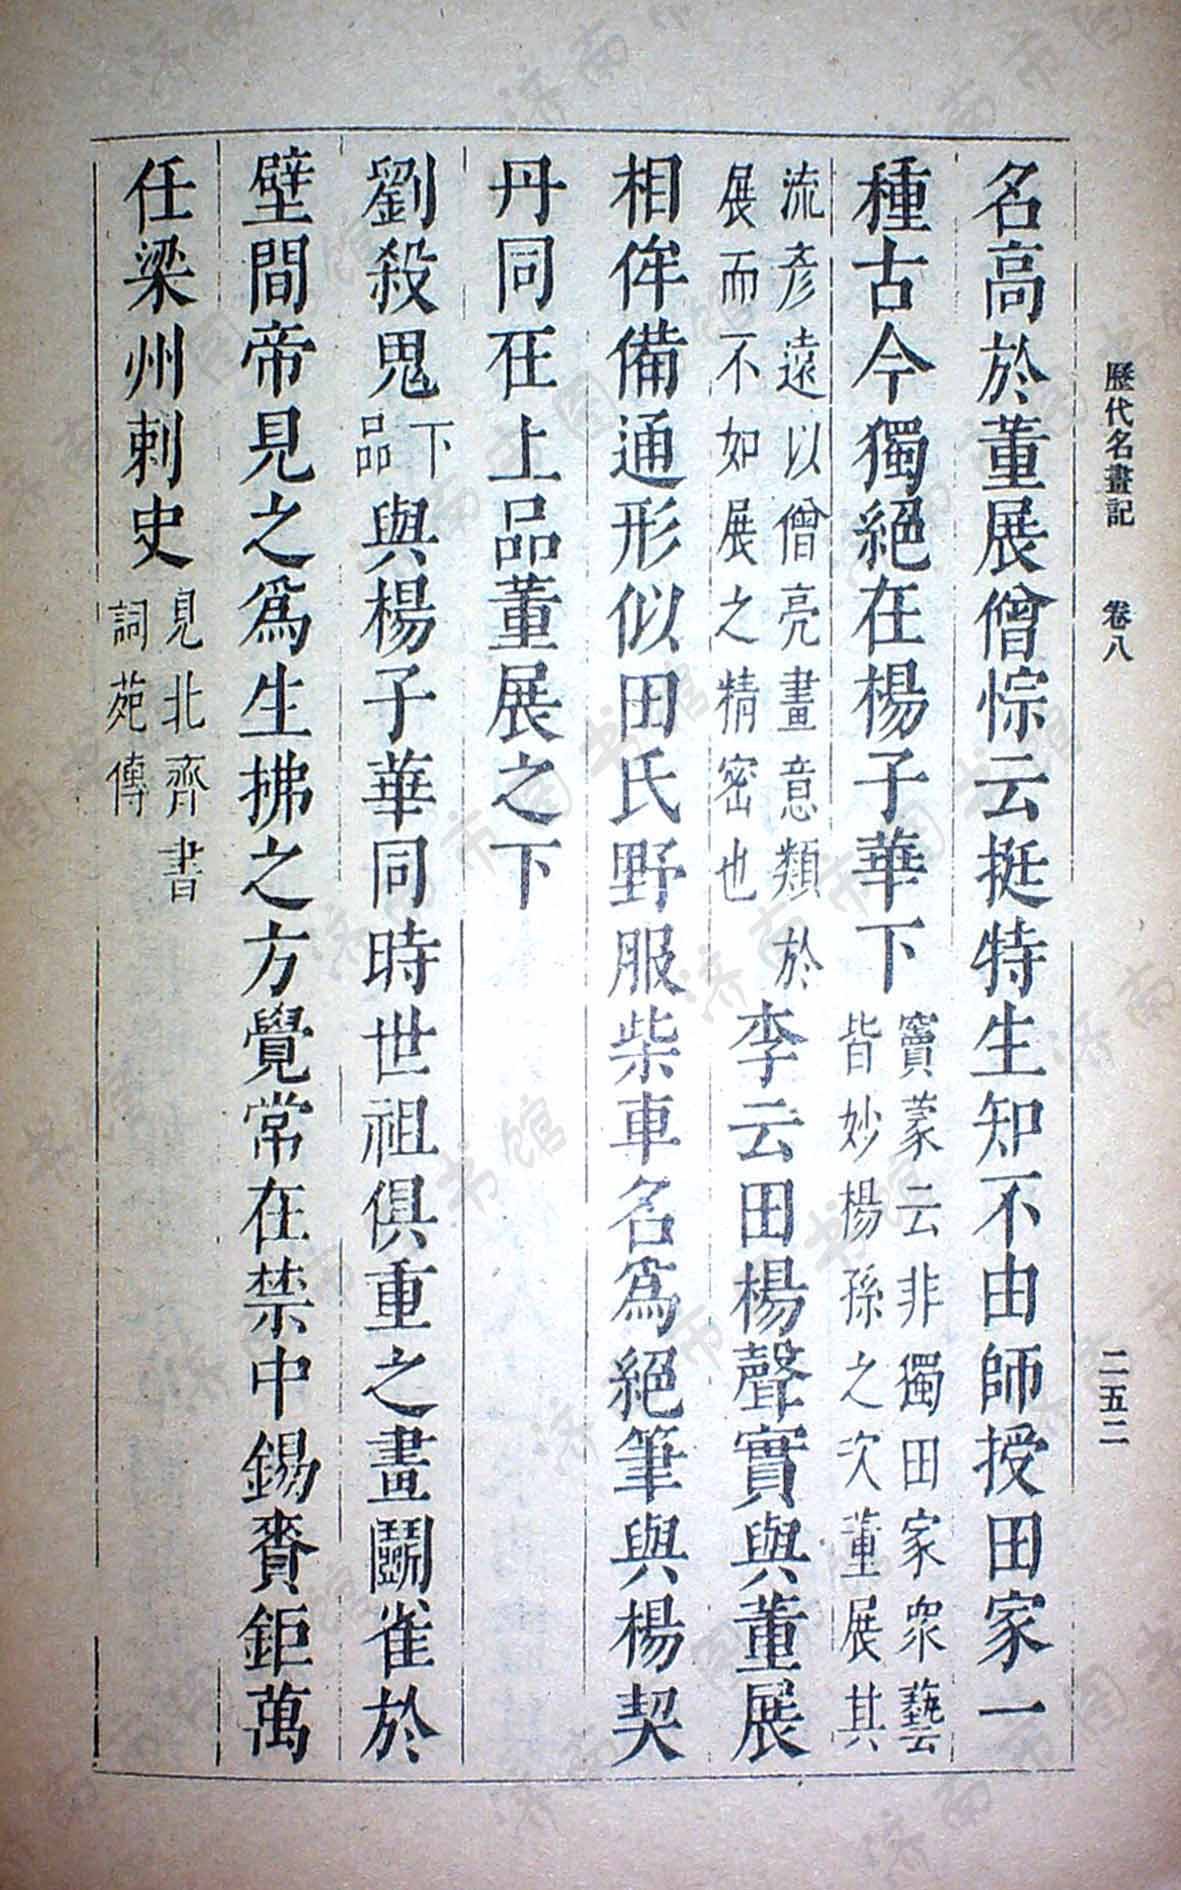 歷代名畫記　卷八　二五二
名高於董展僧悰云挺特生知不由師授田家一
種古今獨絕在楊子華下
竇蒙云非獨田家衆藝
皆妙楊孫之次董展其
流彥遠以僧亮畫意類於
展而不如展之精密也
李云田楊聲實與董展
相侔備通形似田氏野服柴車名爲絕筆與楊契
丹同在上品董展之下
劉殺鬼
下
品
與楊子華同時世祖俱重之畫鬭雀於
壁間帝見之爲生拂之方覺常在禁中錫賚鉅萬
任梁州刺史
見北齊書
詞苑傳
济南市图书馆